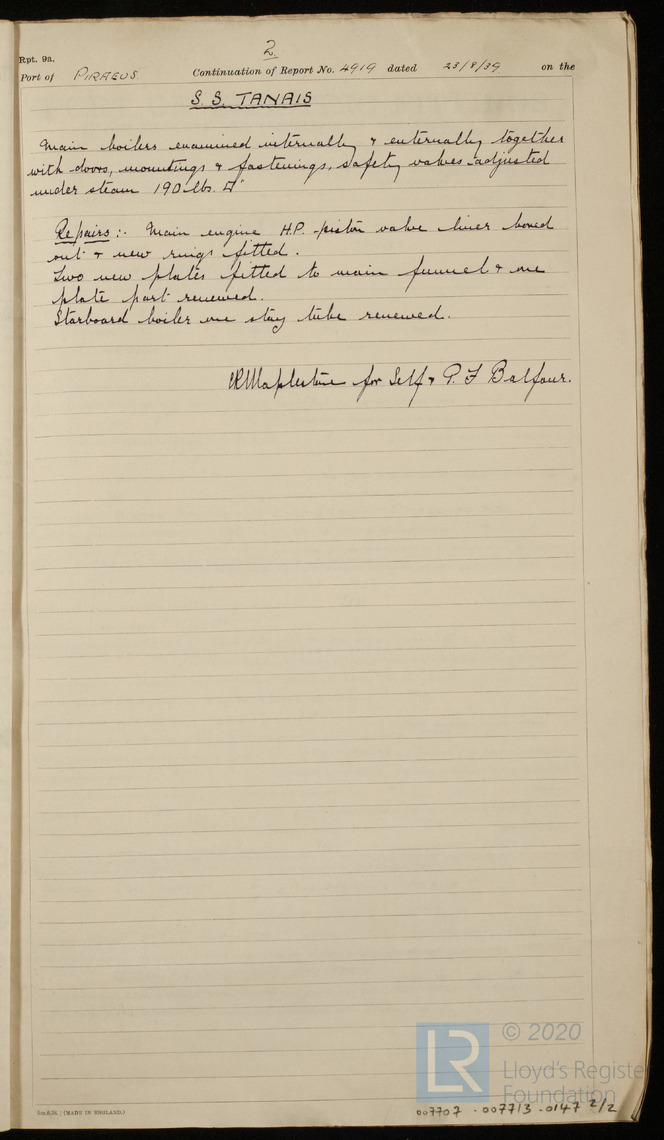 2.
Rpt. 9a.
Port of PIRAEUS Continuation of Report No. 4919 dated 23/8/39 on the
S. S. TANAIS
Main boilers examined internally & externally together
with doors, mountings & fastenings, safety valves adjusted
under steam 190 lbs. □"
Repairs:- Main engine H.P. piston valve liner bored
out & new rings fitted.
Two new plates fitted to main funnel & one
plate part renewed.
Starboard boiler one stay tube renewed.
for Self & P. F Balfour.
(MADE IN ENGLAND.)
LR © 2020
Lloyd's Register
Foundation
007707 - 007713 - 0147 2/2